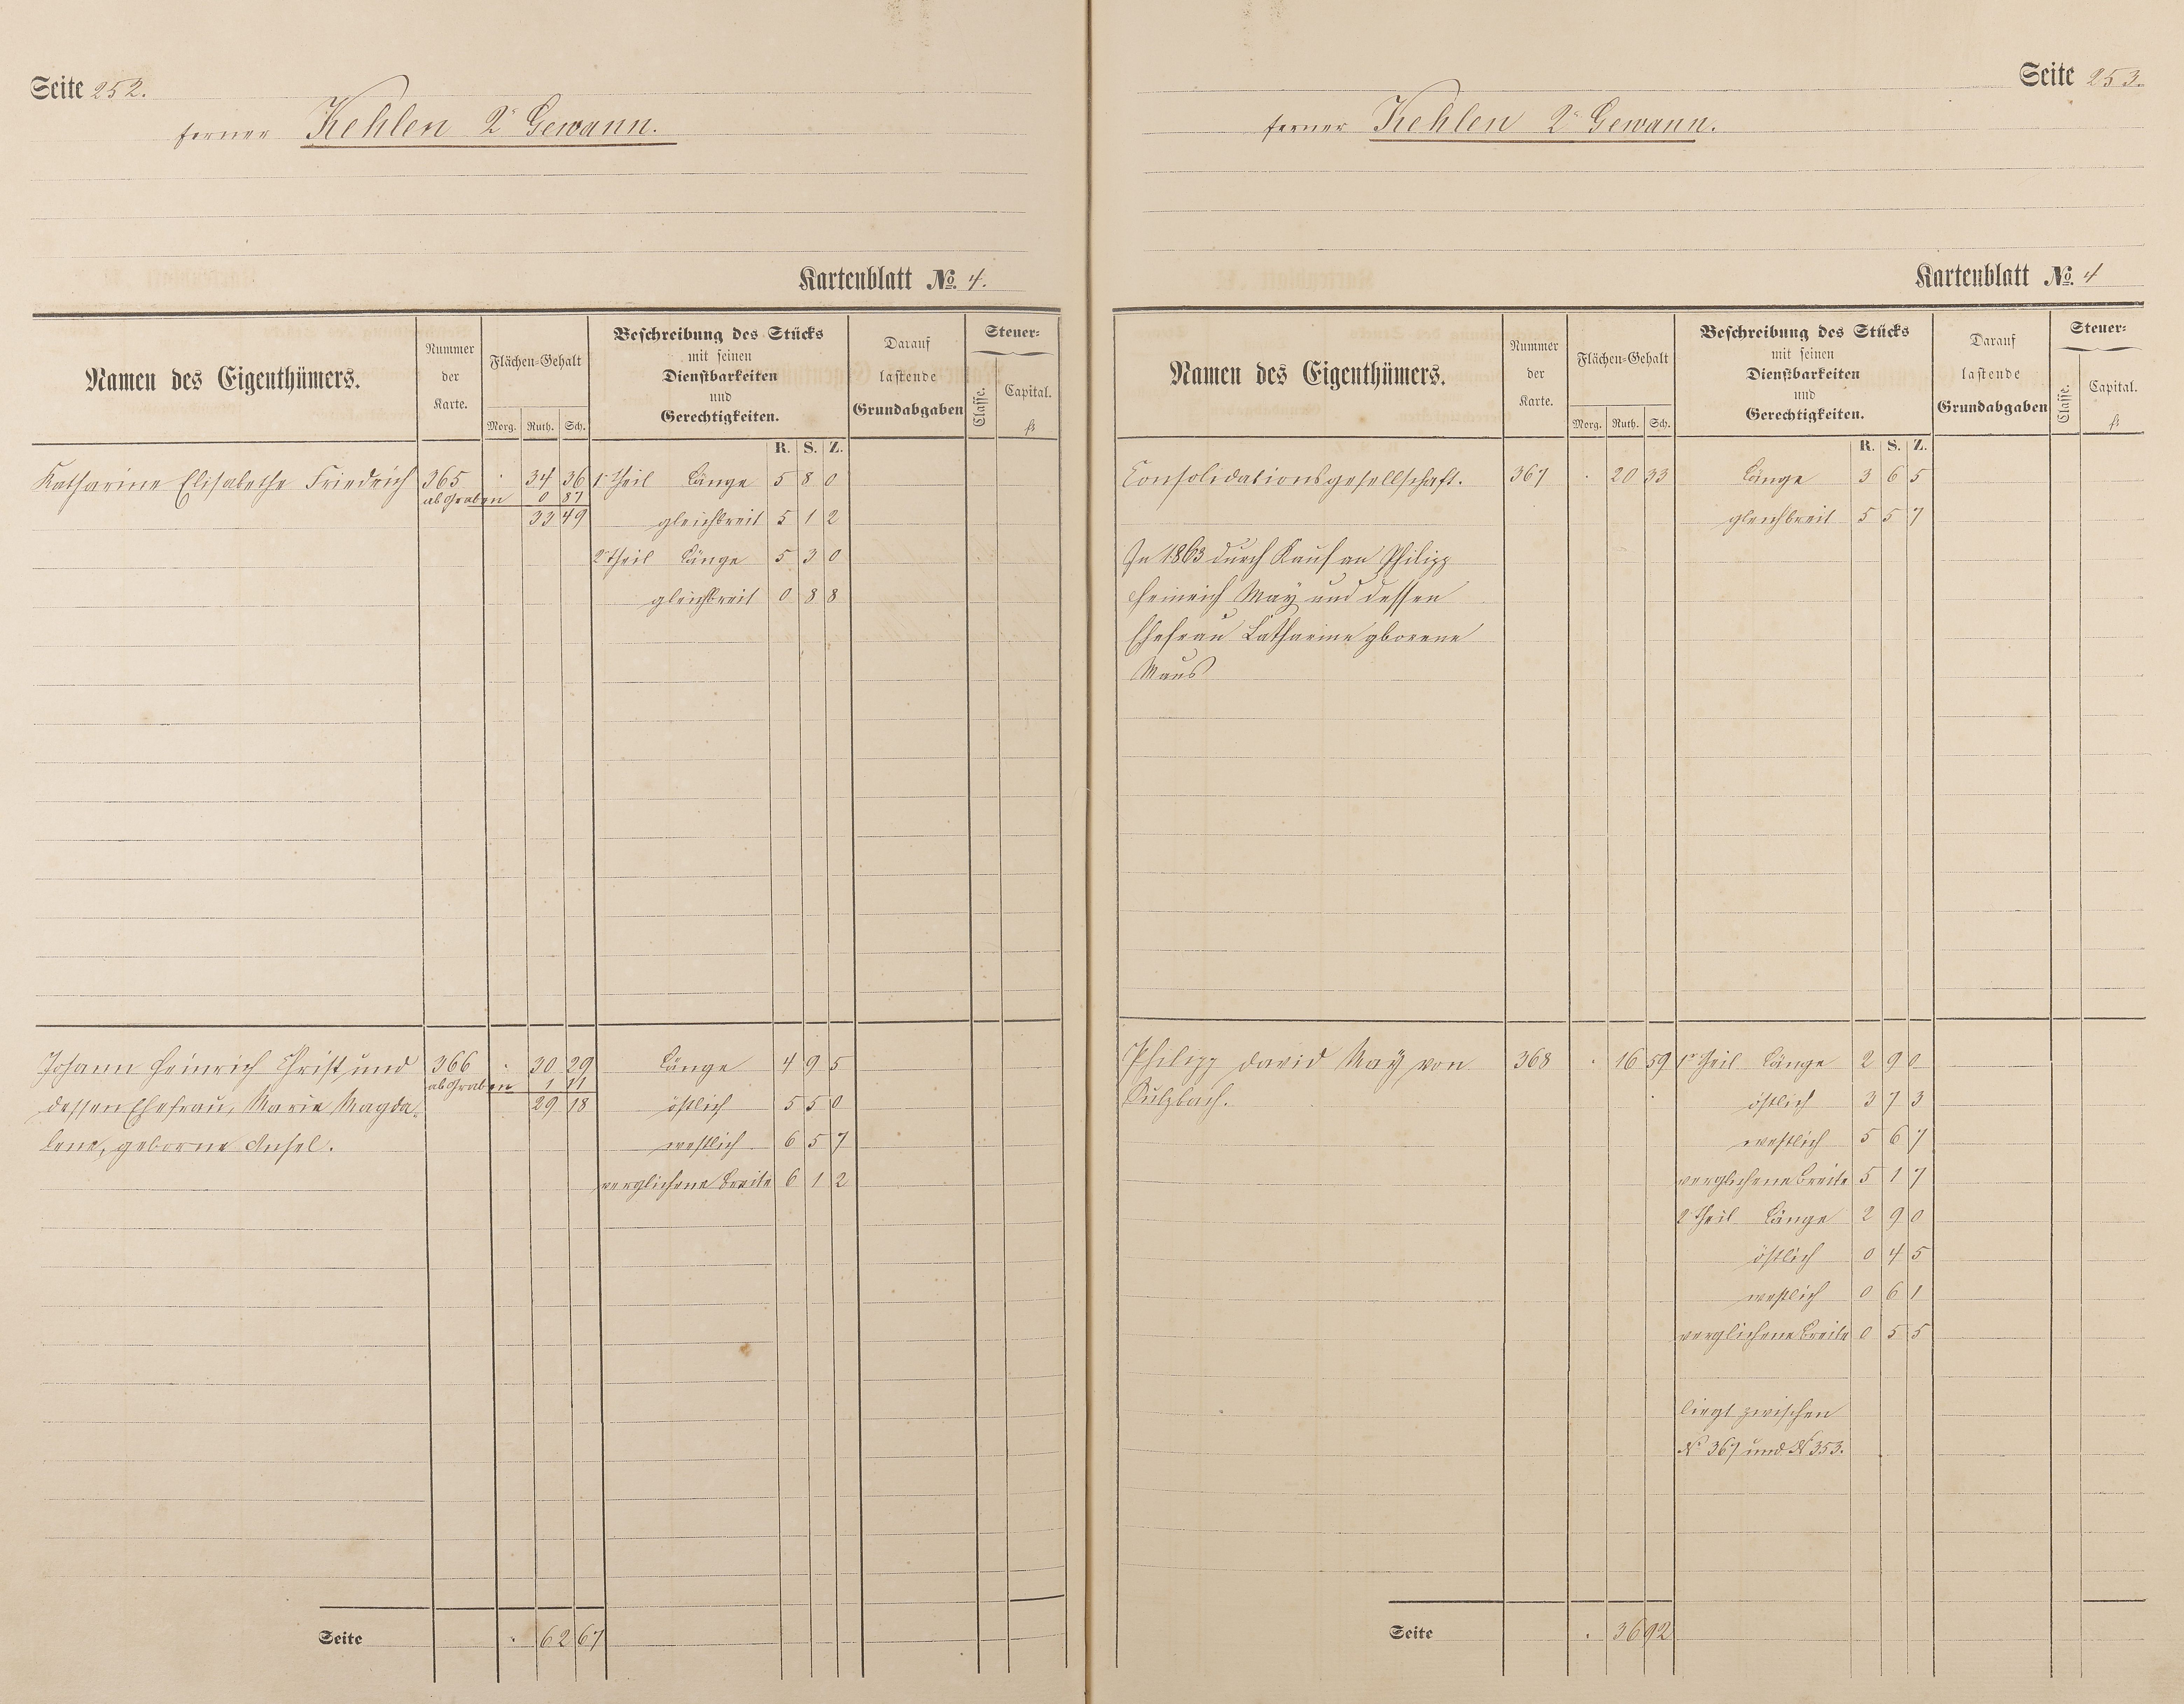 Seite 252.
ferner Kehlen 2r Gewann.
Kartenblatt No. 4.
Namen des Eigenthümers.
Nummer der Karte.
Flächen-Gehalt
Morg. Ruth. Sch.
Beschreibung des Stücks
mit seinen
Dienstbarkeiten
und
Gerechtigkeiten.
Darauf
lastende
Grundabgaben
Steuer-
Classe.
Capital.
fl
R. S. Z.
Katharine Elisabethe Friedrich 365 . 34 36 1r Theil Länge 5 8 0
ab Graben 0 87
33 49 gleichbreit 5 1 2
2r Theil Länge 5 3 0
gleichbreit 0 8 8
Johann Heinrich Christ und 366 . 30 29 Länge 4 9 5
ab Graben 1 11
dessen Ehefrau, Marie Magda- 29 18 östlich 5 5 0
lene, geborne Ansel. westlich 6 5 7
verglichene Breite 6 1 2
Seite . 62 67
Seite 253.
ferner Kehlen 2r Gewann.
Kartenblatt No. 4
Namen des Eigenthümers.
Nummer der Karte.
Flächen-Gehalt
Morg. Ruth. Sch.
Beschreibung des Stücks
mit seinen
Dienstbarkeiten
und
Gerechtigkeiten.
Darauf
lastende
Grundabgaben
Steuer-
Classe.
Capital.
fl
R. S. Z.
Consolidationsgesellschaft. 367 . 20 33 Länge 3 6 5
gleichbreit 5 5 7
In 1863 durch Kauf an Philipp
Heinrich May und dessen
Ehefrau Catharine gborene
Maus
Philipp David May von 368 . 16 59 1r Theil Länge 2 9 0
Sulzbach. östlich 3 7 3
westlich 5 6 7
verglichene Breite 5 1 7
2r Theil Länge 2 9 0
östlich 0 4 5
westlich 0 6 1
verglichene Breite 0 5 5
liegt zwischen
No 367 und No 353.
Seite . 36 92